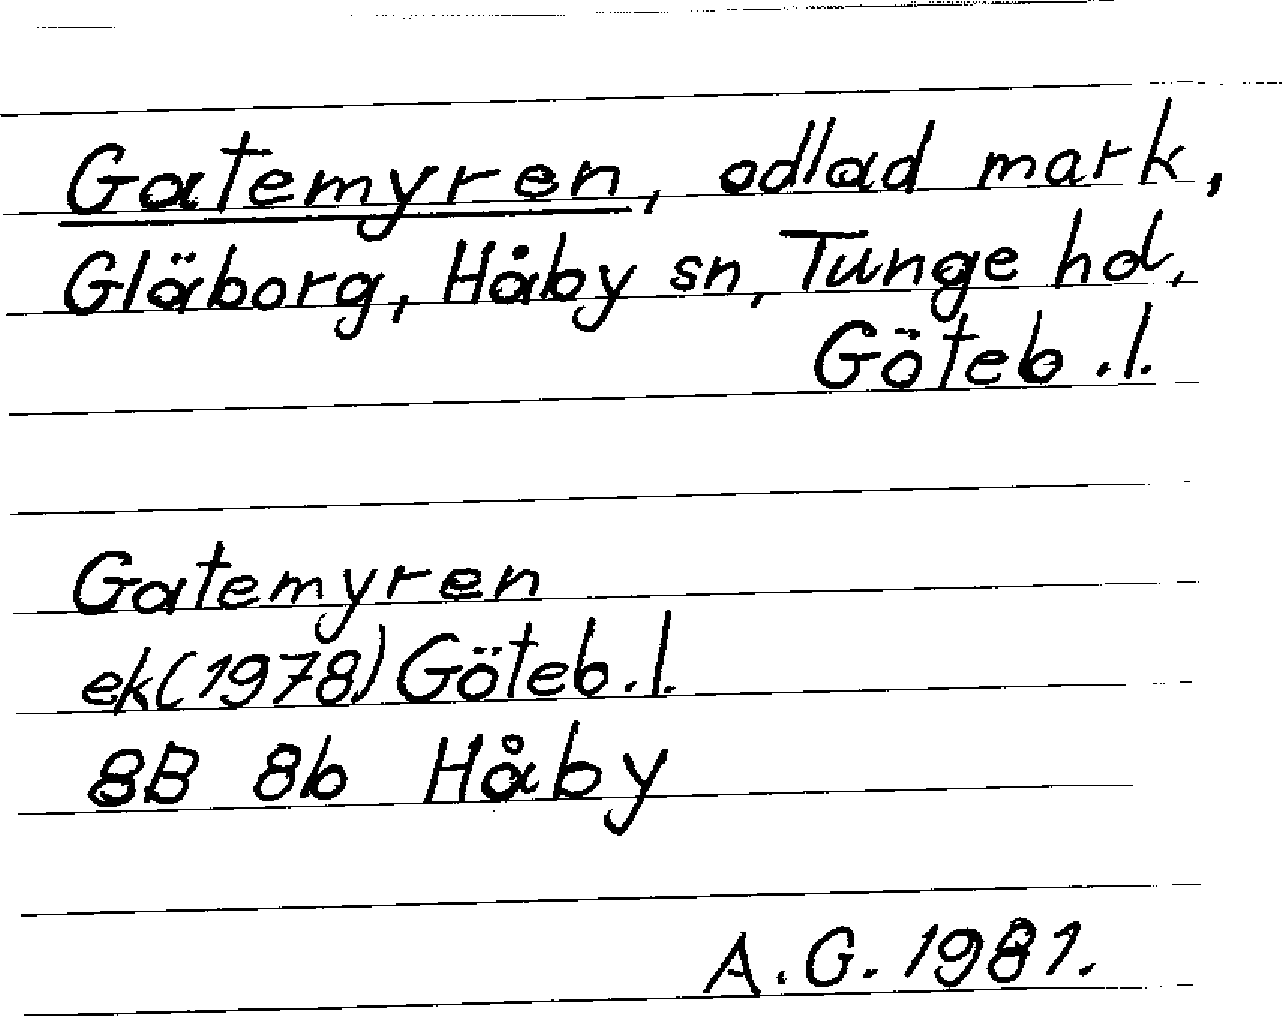 Gatemyren, odlad mark,
Gläborg, Håby sn, Tunge hd,
Göteb.l.
Gatemyren
ek(1978) Göteb.l.
8B 8b Håby
A.G. 1981.